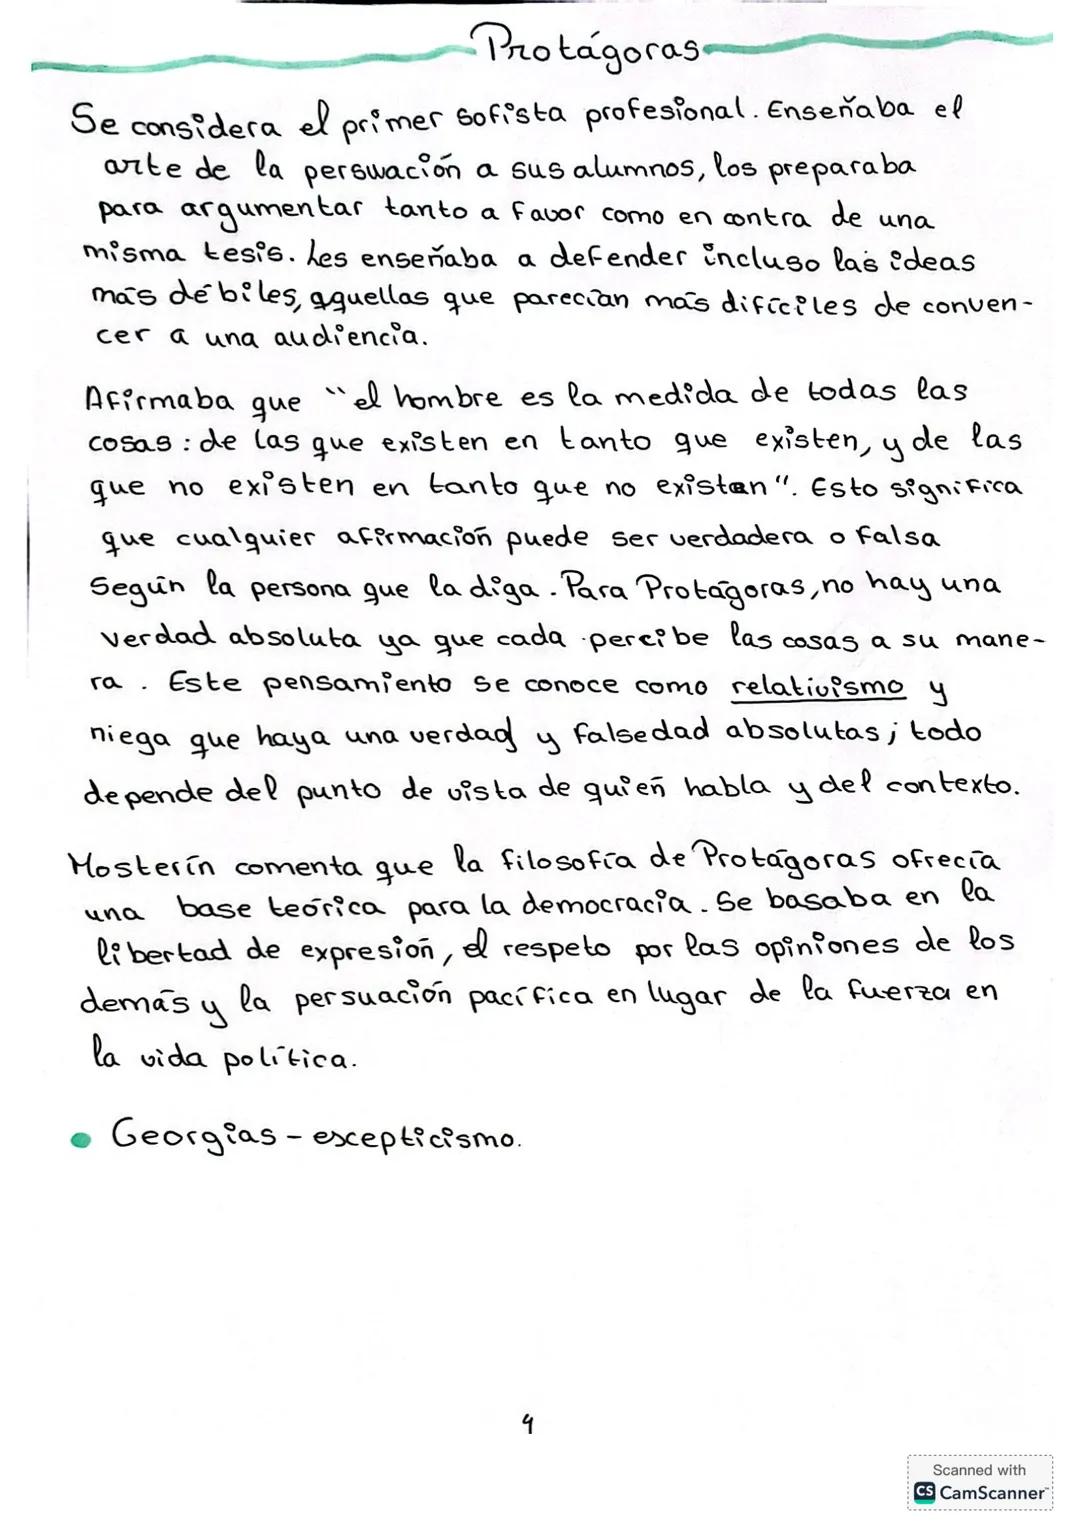 Protágoras
Se considera el primer sofista profesional. Enseñaba el
arte de la perswación a sus alumnos, los preparaba
para argumentar tanto a favor como en contra de una
misma tesis. Les enseñaba a defender incluso las ideas
más débiles, aquellas que parecían más difíciles de conven-
cer a una audiencia.
Afirmaba que "el hombre es la medida de todas las
cosas: de las que existen en tanto que existen, y de las
que no existen en tanto que no existen". Esto significa
que cualquier afirmación puede ser verdadera o falsa
según la persona que la diga. Para Protágoras, no hay una
verdad absoluta ya que cada percibe las cosas a su mane-
ra. Este pensamiento se conoce como relativismo y
niega que haya una verdad y falsedad absolutas; todo
depende del punto de vista de quién habla y del contexto.
Mosterín comenta que la filosofía de Protágoras ofrecía
una base teórica para la democracia. Se basaba en la
libertad de expresión, el respeto por las opiniones de los
demás y la persuación pacífica en lugar de la fuerza en
la vida política.
• Georgias - escepticismo.
4
Scanned with
CS CamScanner